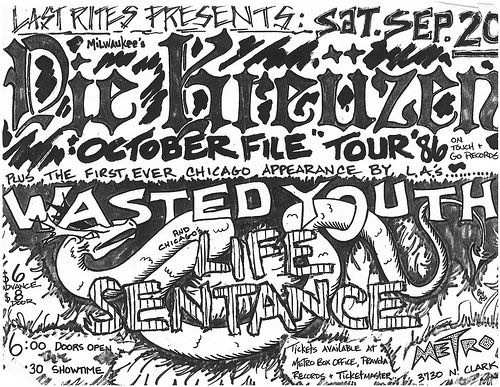 LAST RITES PRESENTS: SAT. SEP. 20
Milwaukee's
Die Kreüzen
"OCTOBER FILE" TOUR '86
ON TOUCH + GO RECORDS
PLUS THE FIRST EVER CHICAGO APPEARANCE BY L.A.'s
WASTED YOUTH
AND CHICAGO'S
LIFE
SENTANCE
$6 ADVANCE
$8 DOOR
6:00 DOORS OPEN
:30 SHOWTIME
TICKETS AVAILABLE AT
METRO BOX OFFICE, PRAVDA
RECORDS + TICKETMASTER
METRO
3730 N. CLARK